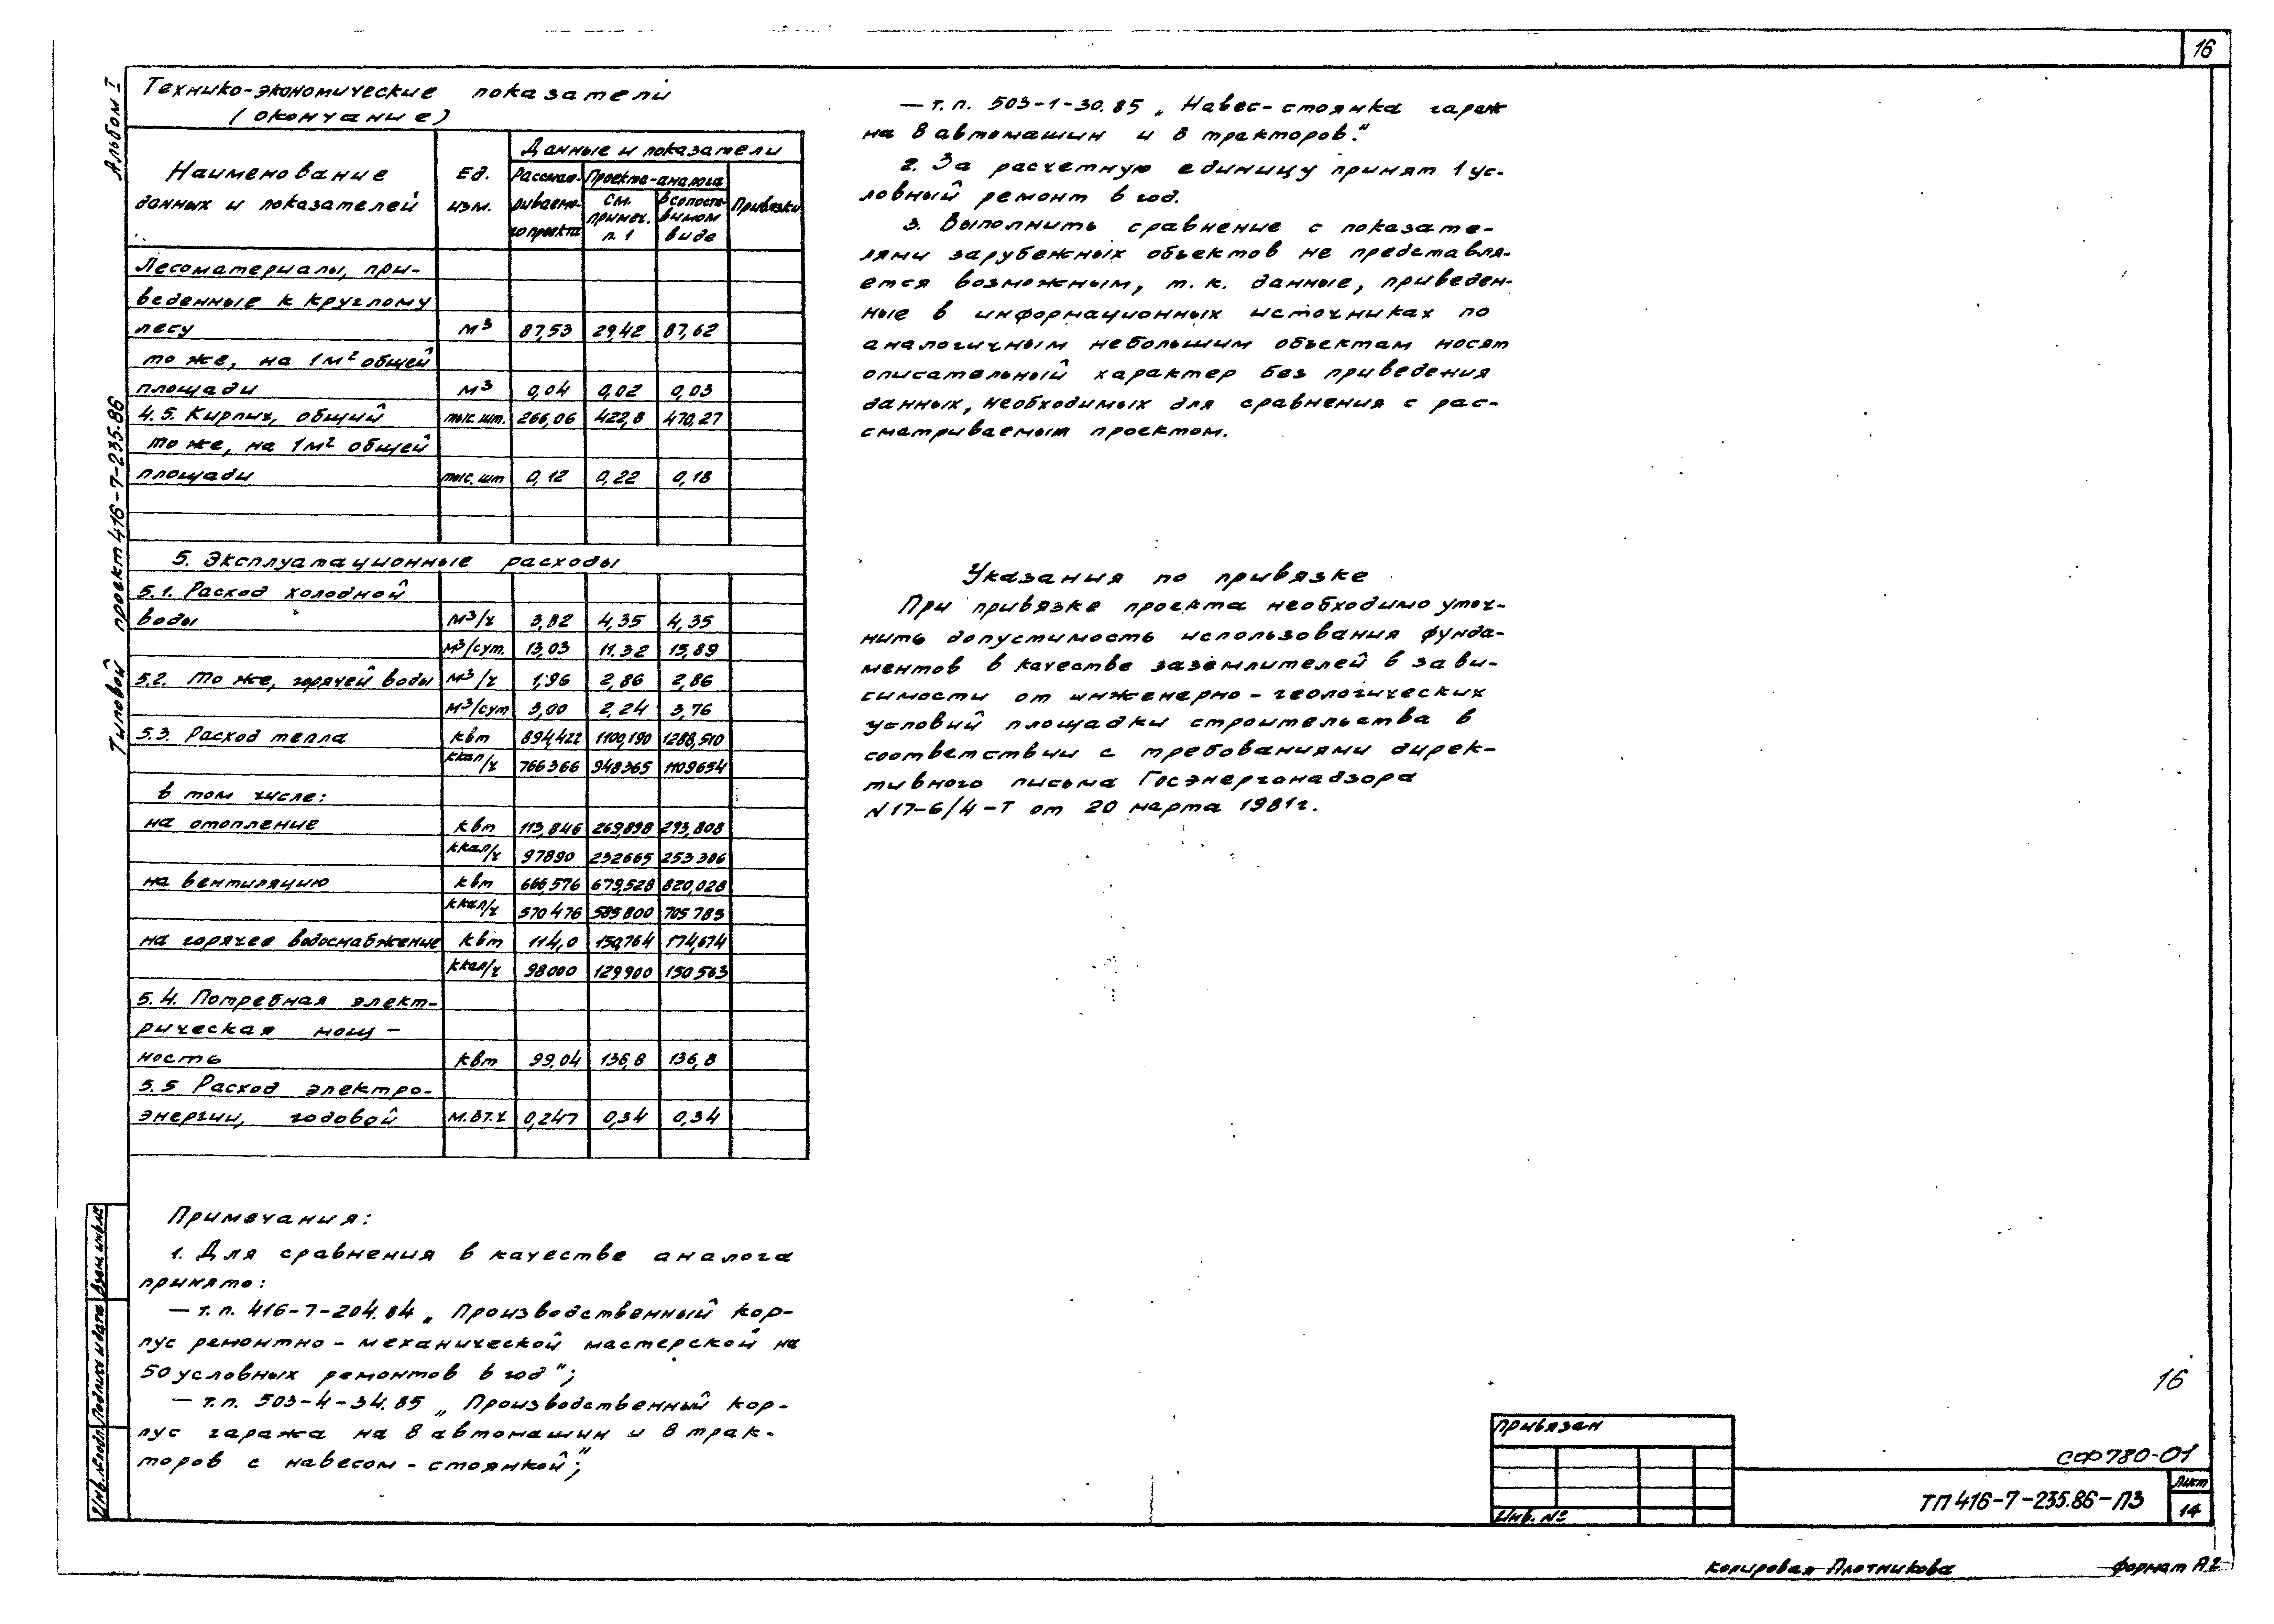 16
Альбом I
Типовой проект 416-7-235.86
Технико-экономические показатели
(окончание)
Наименование данных и показателей
Ед. изм.
Данные и показатели
Рассмат-риваемо-го проекта
Проекта-аналога
см. примеч. п. 1
в сопоста-вимом виде
Привязки
Лесоматериалы, при-
веденные к круглому
лесу м³ 87,53 29,42 87,62
то же, на 1м² общей
площади м³ 0,04 0,02 0,03
4.5. Кирпич, общий тыс. шт. 266,06 422,8 470,27
то же, на 1м² общей
площади тыс. шт 0,12 0,22 0,18
5. Эксплуатационные расходы
5.1. Расход холодной
воды м³/ч 3,82 4,35 4,35
м³/сут. 13,03 11.32 15,89
5.2. То же, горячей воды м³/ч 1,96 2,86 2,86
м³/сут 3,00 2,24 3,76
5.3. Расход тепла квт 894,422 1100,190 1288,510
ккал/ч 766366 948365 1109654
в том числе:
на отопление квт 113,846 269,898 293,808
ккал/ч 97890 232665 253386
на вентиляцию квт 666,576 679,528 820,028
ккал/ч 570476 585800 705785
на горячее водоснабжение квт 114,0 150,764 174,674
ккал/ч 98000 129900 150563
5.4. Потребная элект-
рическая мощ-
ность квт 99.04 136,8 136,8
5.5 Расход электро-
энергии, годовой М.Вт.ч 0,247 0,34 0,34
Примечания:
1. Для сравнения в качестве аналога
принято:
— т.п. 416-7-204.84 „Производственный кор-
пус ремонтно-механической мастерской на
50 условных ремонтов в год";
— т.п. 503-4-34.85 „Производственный кор-
пус гаража на 8 автомашин и 8 трак-
торов с навесом-стоянкой";
— т.п. 503-1-30.85 „Навес-стоянка гараж
на 8 автомашин и 8 тракторов."
2. За расчетную единицу принят 1 ус-
ловный ремонт в год.
3. Выполнить сравнение с показате-
лями зарубежных объектов не представля-
ется возможным, т.к. данные, приведен-
ные в информационных источниках по
аналогичным небольшим объектам носят
описательный характер без приведения
данных, необходимых для сравнения с рас-
сматриваемым проектом.
Указания по привязке
При привязке проекта необходимо уточ-
нить допустимость использования фунда-
ментов в качестве заземлителей в зави-
симости от инженерно-геологических
условий площадки строительства в
соответствии с требованиями дирек-
тивного письма Госэнергонадзора
N17-6/4-Т от 20 марта 1981г.
Инв. № подл. Подпись и дата Взам. инв. №
16
Привязан
Инв. №
СФ780-01
ТП 416-7-235.86-ПЗ
Лист
14
Копировал Плотникова
Формат А2